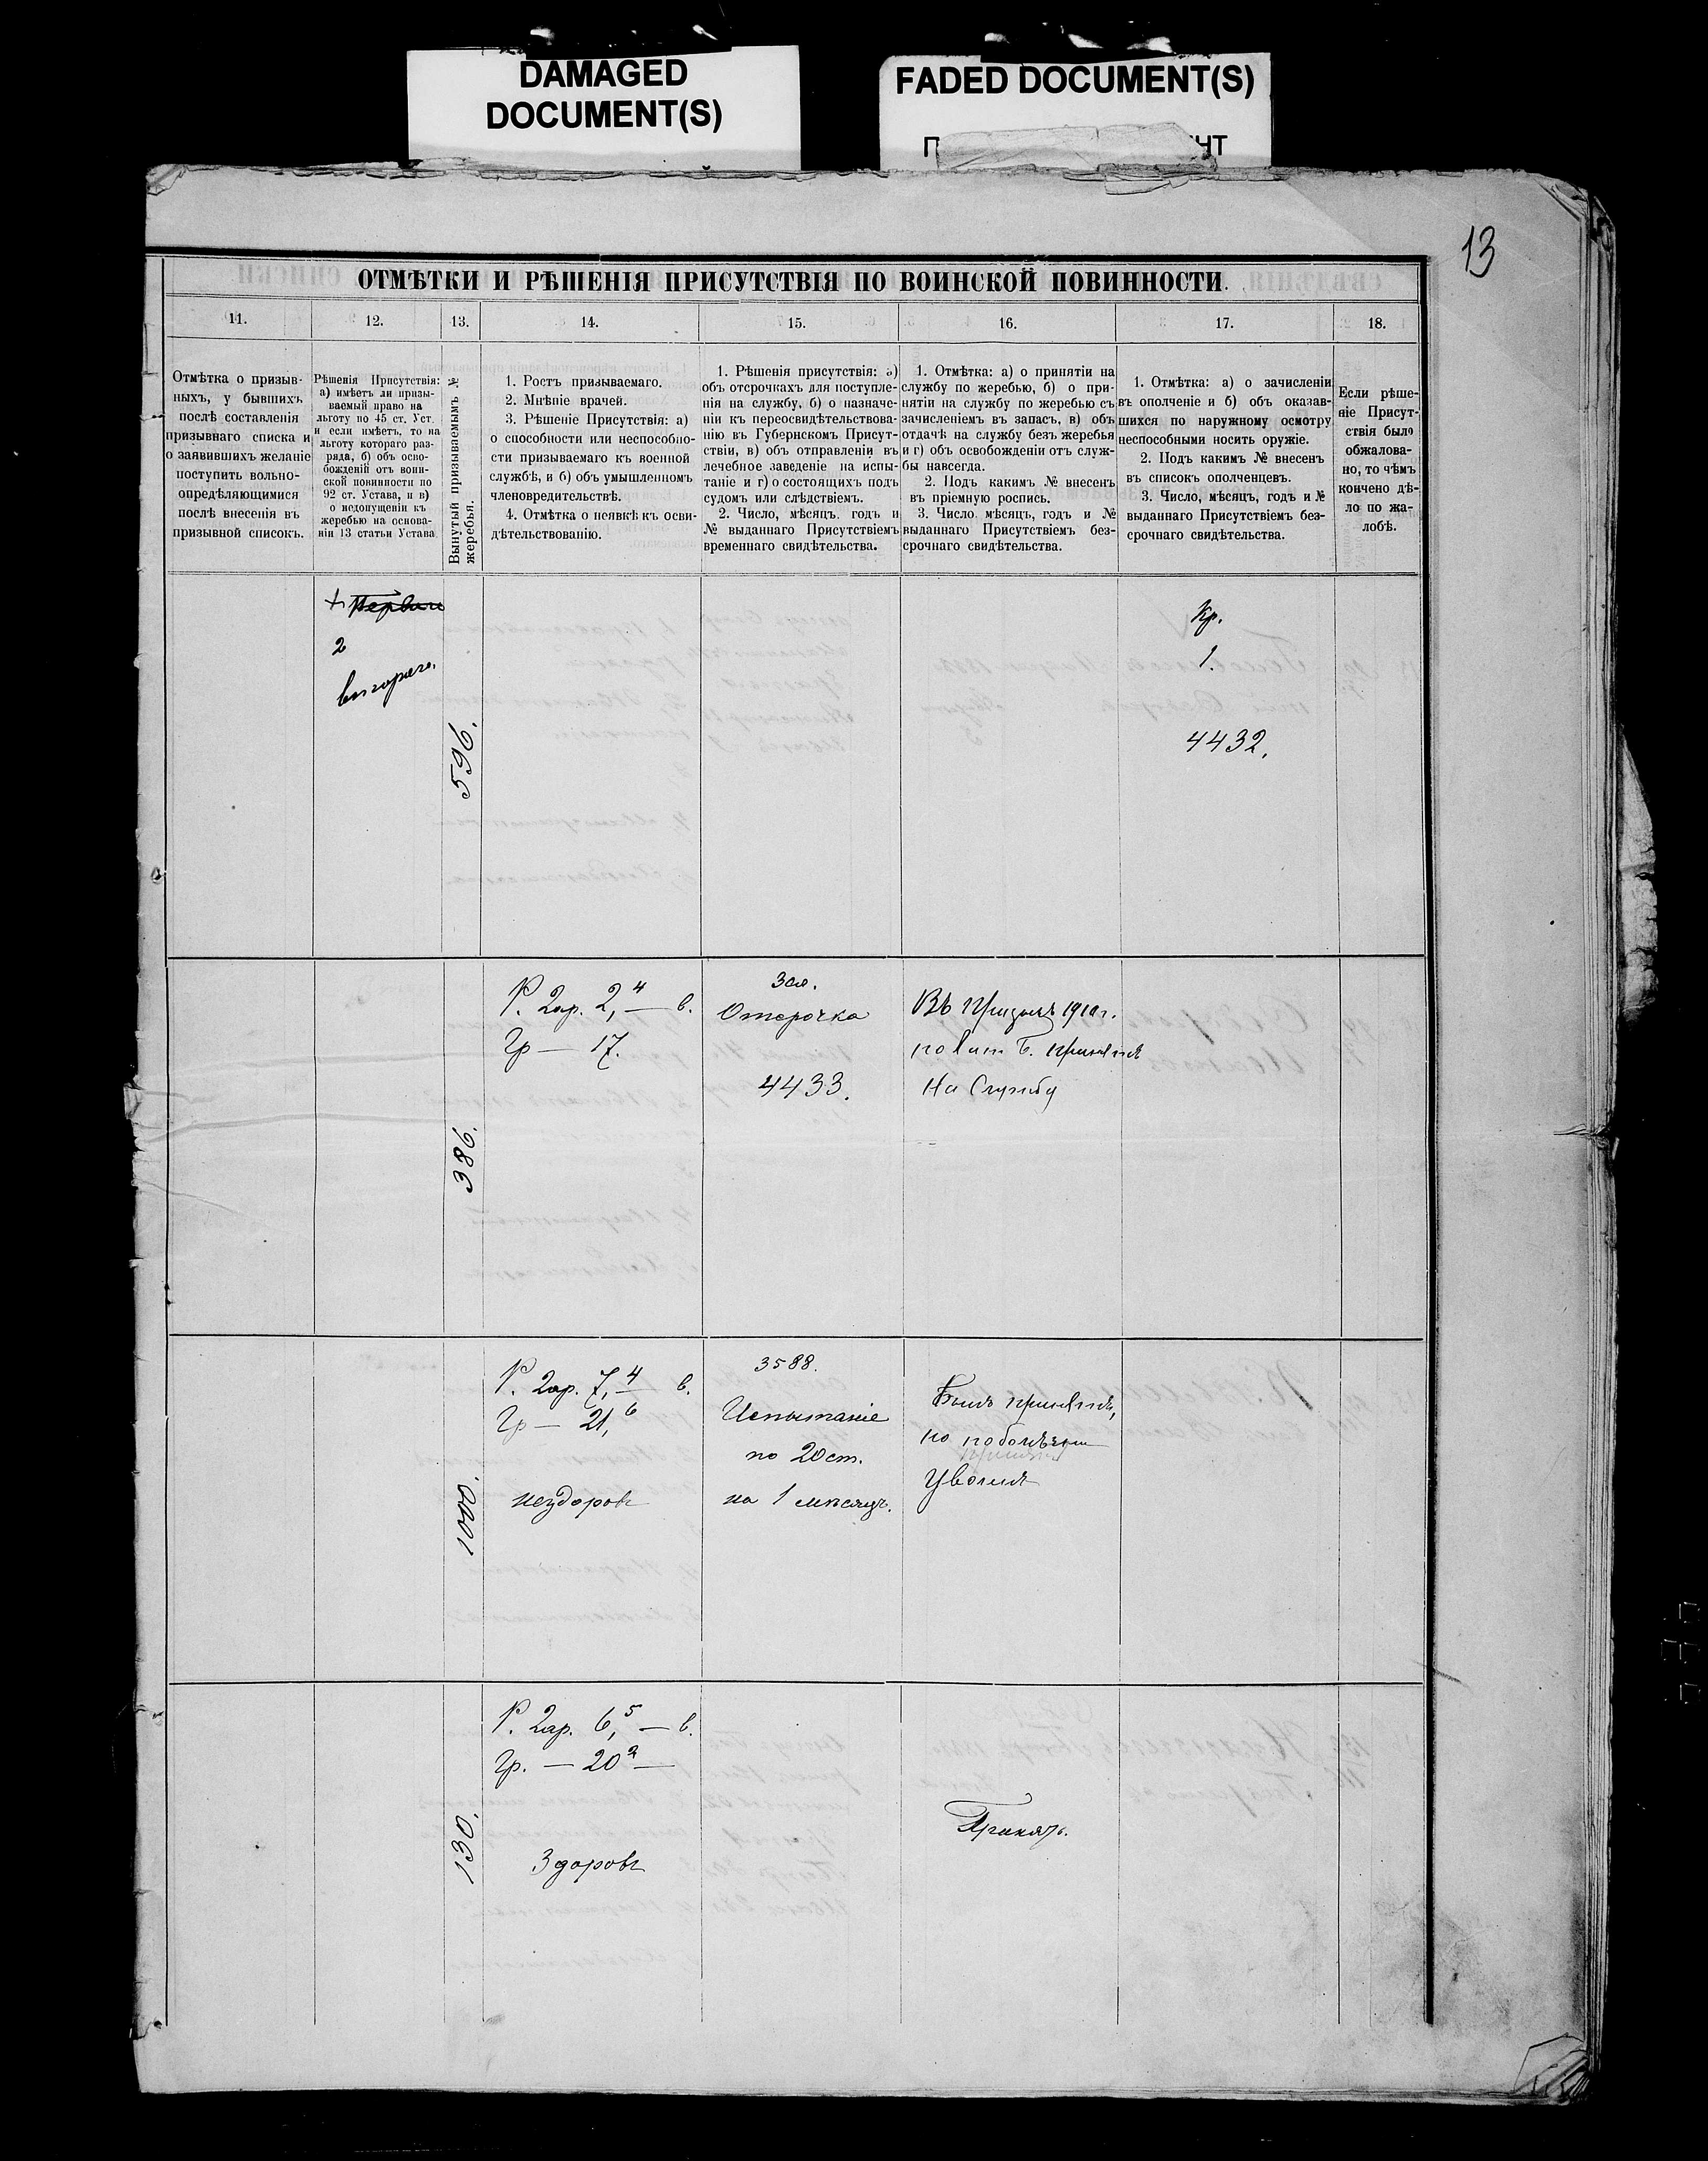 DAMAGED
DOCUMENT(S)
FADED DOCUMENT(S)
13
ОТМѢТКИ И РѢШЕНІЯ ПРИСУТСТВІЯ ПО ВОИНСКОЙ ПОВИННОСТИ.
11.
12.
13.
14.
15.
16.
17.
18.
Отмѣтка о призыв-
ныхъ, у бывшихъ
послѣ составленія
призывнаго списка и
о заявившихъ желаніе
поступить вольно-
опредѣляющимися
послѣ внесенія въ
призывной списокъ.
Рѣшенія Присутствія:
а) имѣетъ ли призы-
ваемый право на
льготу по 45 ст. Уст.
и если имѣетъ, то на
льготу котораго раз-
ряда, б) объ осво-
божденіи отъ воин-
ской повинности по
92 ст. Устава, и в)
о недопущеніи къ
жеребью на основа-
ніи 13 статьи Устава
Вынутый призываемымъ №
жеребья.
1. Ростъ призываемаго.
2. Мнѣніе врачей.
3. Рѣшеніе Присутствія: а)
о способности или неспособно-
сти призываемаго къ военной
службѣ, и б) объ умышленномъ
членовредительствѣ.
4. Отмѣтка о неявкѣ къ осви-
дѣтельствованію.
1. Рѣшенія присутствія: а)
объ отсрочкахъ для поступле-
нія на службу, б) о назначе-
ніи къ переосвидѣтельствова-
нію въ Губернскомъ Присут-
ствіи, в) объ отправленіи въ
лечебное заведеніе на испы-
таніе и г) о состоящихъ подъ
судомъ или слѣдствіемъ.
2. Число, мѣсяцъ, годъ и
№ выданнаго Присутствіемъ
временнаго свидѣтельства.
1. Отмѣтка: а) о принятіи на
службу по жеребью, б) о при-
нятіи на службу по жеребью съ
зачисленіемъ въ запасъ, в) объ
отдачѣ на службу безъ жеребья
и г) объ освобожденіи отъ служ-
бы навсегда.
2. Подъ какимъ № внесенъ
въ пріемную роспись.
3. Число, мѣсяцъ, годъ и №
выданнаго Присутствіемъ без-
срочнаго свидѣтельства.
1. Отмѣтка: а) о зачисленіи
въ ополченіе и б) объ оказав-
шихся по наружному осмотру
неспособными носить оружіе.
2. Подъ какимъ № внесенъ
въ списокъ ополченцевъ.
3. Число, мѣсяцъ, годъ и №
выданнаго Присутствіемъ без-
срочнаго свидѣтельства.
Если рѣше-
ніе Присут-
ствія было
обжалова-
но, то чѣмъ
кончено дѣ-
ло по жа-
лобѣ.
2
596.
Кр.
1.
4432.
386.
Р. 2ар. 2,4 — в.
Гр — 17.
Отсрочка
4433.
Въ 1910 г.
принятъ
На Службу
1000.
Р. 2ар. 7,4 — в.
Гр — 21,6
нездоровъ
3588.
Испытаніе
по 20 ст.
на 1 мѣсяцъ.
Былъ принятъ,
но по болѣзни
Уволенъ
130.
Р. 2ар. 6,5 — в.
Гр. — 20 2 —
Здоровъ
Принятъ.